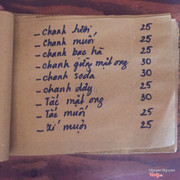 - chanh tươi 25
- chanh muối 25
- chanh bạc hà 25
- chanh giây mật ong 30
- chanh soda 30
- chanh dây 25
- Tắc mật ong 30
- Tắc muối 25
- Xí muội 25